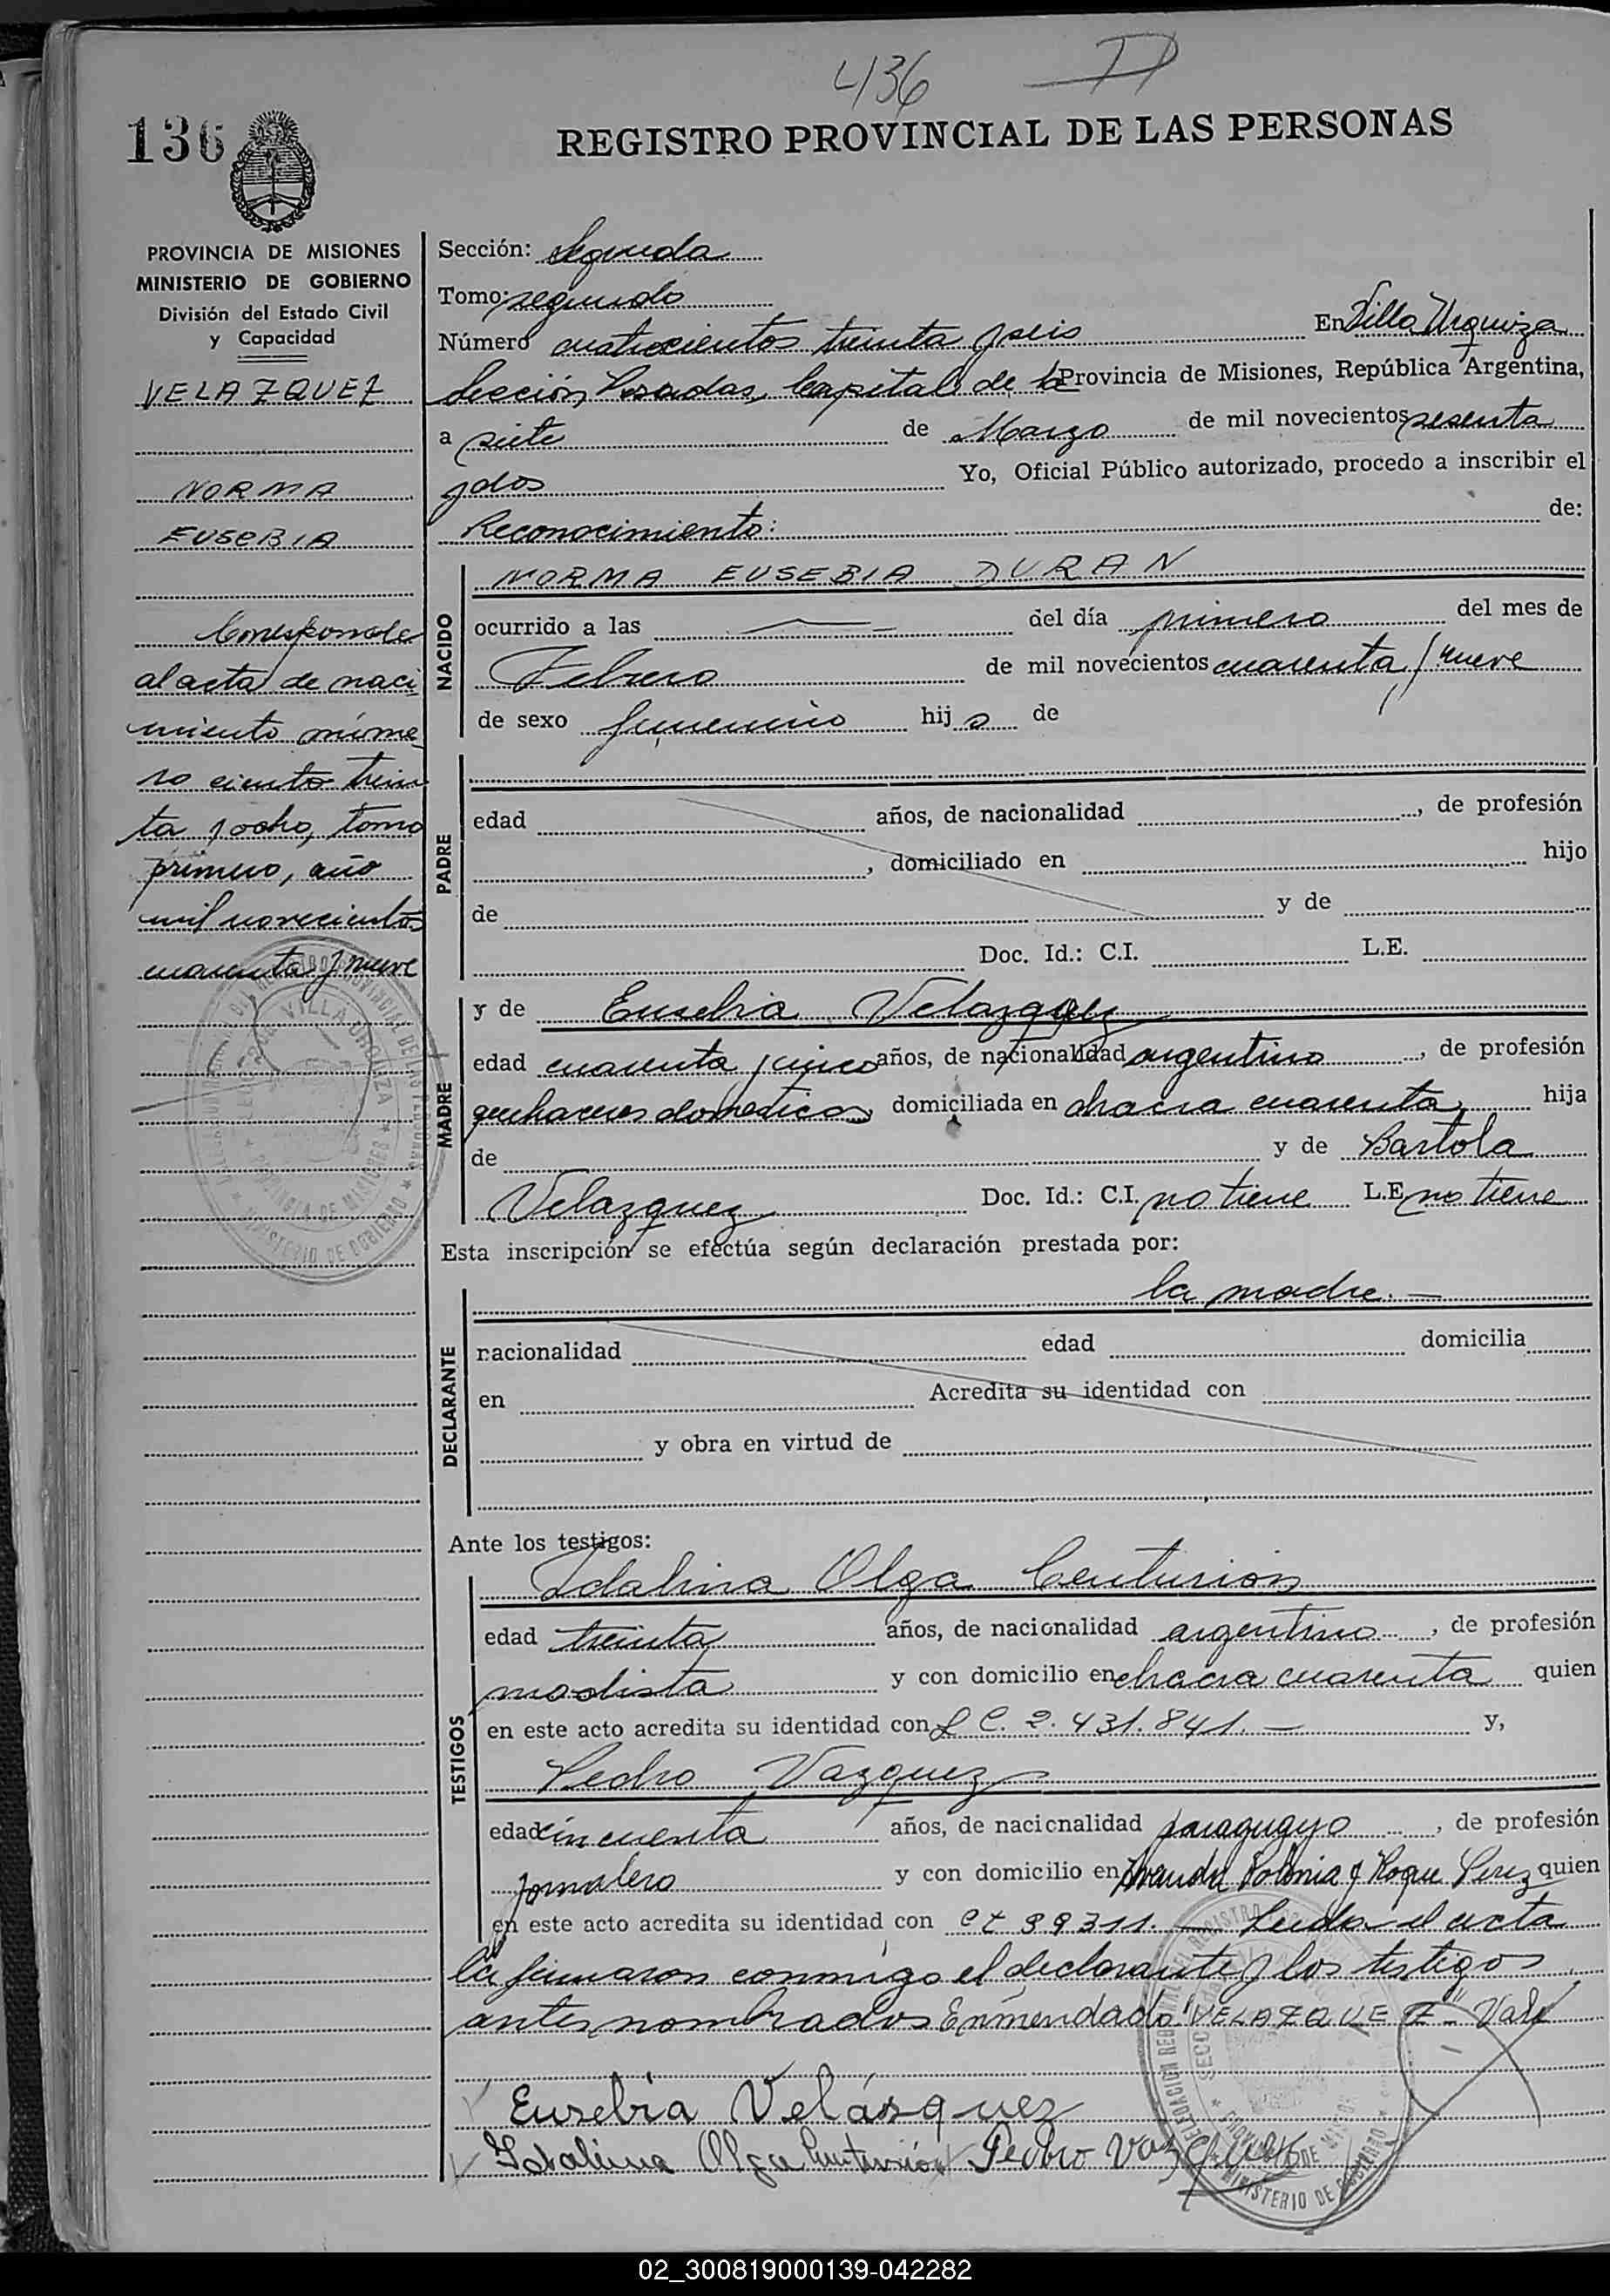 436 II
136
REGISTRO PROVINCIAL DE LAS PERSONAS
PROVINCIA DE MISIONES
MINISTERIO DE GOBIERNO
División del Estado Civil
y Capacidad
VELAZQUEZ
NORMA
EUSEBIA
Corresponde
al acta de naci
miento núme
ro ciento trein
ta y ocho, tomo
primero, año
mil novecientos
cuarenta y nueve
Sección: Segunda
Tomo: segundo
Número cuatrocientos treinta y seis En Villa Urquiza
Sección Posadas, Capital de la Provincia de Misiones, República Argentina,
a siete de Marzo de mil novecientos sesenta
y dos Yo, Oficial Público autorizado, procedo a inscribir el
Reconocimiento: de:
NACIDO
NORMA EUSEBIA DURAN
ocurrido a las — del día primero del mes de
Febrero de mil novecientos cuarenta y nueve
de sexo femenino hija de
PADRE
edad años, de nacionalidad , de profesión
, domiciliado en hijo
de y de
Doc. Id.: C.I. L.E.
MADRE
y de Eusebia Velazquez
edad cuarenta y cinco años, de nacionalidad argentina , de profesión
quehaceres domesticos domiciliada en chacra cuarenta, hija
de y de Bartola
Velazquez Doc. Id.: C.I. no tiene L.E. no tiene
Esta inscripción se efectúa según declaración prestada por:
la madre. —
DECLARANTE
nacionalidad edad domicilia
en Acredita su identidad con
y obra en virtud de
Ante los testigos:
TESTIGOS
Idalina Olga Centurion
edad treinta años, de nacionalidad argentina , de profesión
modista y con domicilio en chacra cuarenta quien
en este acto acredita su identidad con L C. 2.431.841. — y,
Pedro Vazquez
edad cincuenta años, de nacionalidad paraguayo , de profesión
jornalero y con domicilio en Polonia y Roque Perez quien
en este acto acredita su identidad con 39311. — Leida el acta
la firmaron conmigo el declarante y los testigos
antes nombrados Enmendado "VELAZQUEZ" Vale
Eusebia Velásquez
Idalina Olga Centurión Pedro Vazquez
VILLA URQUIZA
PROVINCIA DE MISIONES
MINISTERIO DE GOBIERNO
MINISTERIO DE GOBIERNO
02_300819000139-042282